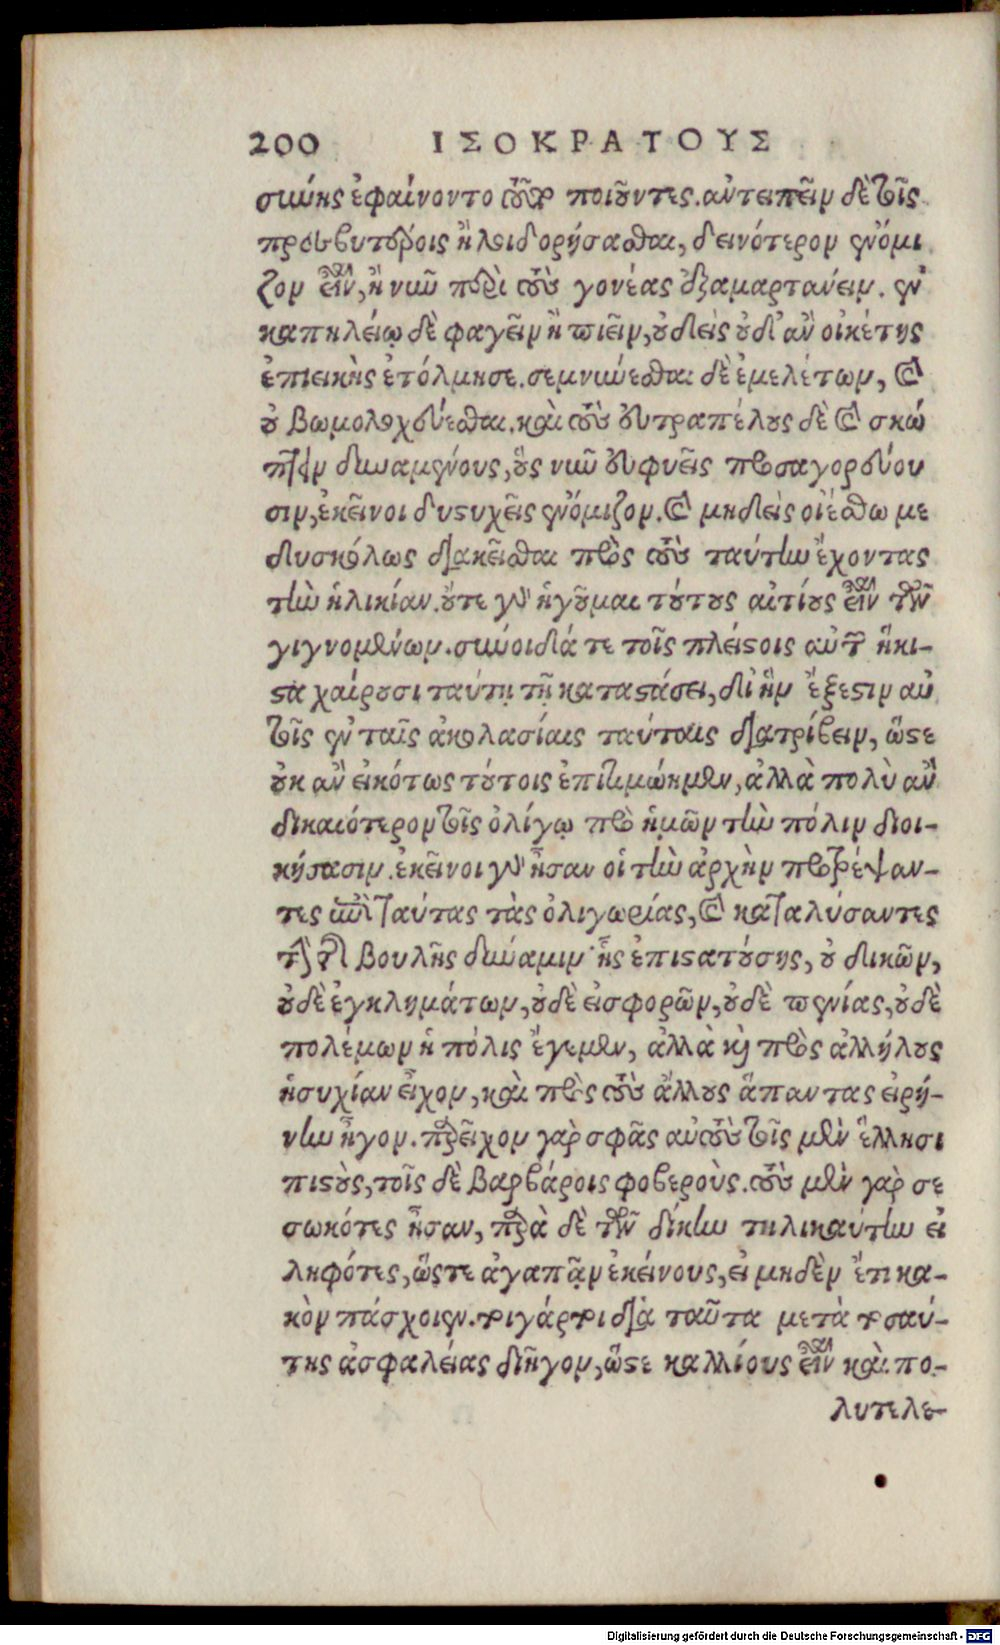 200 ΙΣΟΚΡΑΤΟΥΣ
σύνης ἐφαίνοντο τοῦτο ποιοῦντες. ἀντειπεῖν δὲ τοῖς
πρεσβυτέροις ἢ λοιδορήσασθαι, δεινότερον ἐνόμι
ζον εἶναι, ἢ νῦν περὶ τοὺς γονέας ἐξαμαρτάνειν. ἐν
καπηλείῳ δὲ φαγεῖν ἢ πιεῖν, οὐδεὶς οὐδ' ἂν οἰκέτης
ἐπιεικὴς ἐτόλμησε. σεμνύνεσθαι δὲ ἐμελέτων, καὶ
οὐ βωμολοχεύεσθαι. καὶ τοὺς εὐτραπέλους δὲ καὶ σκώ
πτειν δυναμένους, οὓς νῦν εὐφυεῖς προσαγορεύου
σιν, ἐκεῖνοι δυστυχεῖς ἐνόμιζον. καὶ μηδεὶς οἰέσθω με
δυσκόλως διακεῖσθαι πρὸς τοὺς ταύτην ἔχοντας
τὴν ἡλικίαν. οὔτε γὰρ ἡγοῦμαι τούτους αἰτίους εἶναι τῶν
γιγνομένων. σύνοιδά τε τοῖς πλείστοις αὐτῶν ἥκι-
στα χαίρουσι ταύτῃ τῇ καταστάσει, δι' ἣν ἔξεστιν αὐ
τοῖς ἐν ταῖς ἀκολασίαις ταύταις διατρίβειν, ὥστε
οὐκ ἂν εἰκότως τούτοις ἐπιτιμώημεν, ἀλλὰ πολὺ ἂν
δικαιότερον τοῖς ὀλίγῳ πρὸ ἡμῶν τὴν πόλιν διοι-
κήσασιν. ἐκεῖνοι γὰρ ἦσαν οἱ τὴν ἀρχὴν προτρέψαν-
τες ἐπὶ ταύτας τὰς ὀλιγωρίας, καὶ καταλύσαντες
τὴν τῆς βουλῆς δύναμιν· ἧς ἐπιστατούσης, οὐ δικῶν,
οὐδὲ ἐγκλημάτων, οὐδὲ εἰσφορῶν, οὐδὲ πενίας, οὐδὲ
πολέμων ἡ πόλις ἔγεμεν, ἀλλὰ καὶ πρὸς ἀλλήλους
ἡσυχίαν εἶχον, καὶ πρὸς τοὺς ἄλλους ἅπαντας εἰρή-
νην ἦγον. παρεῖχον γὰρ σφᾶς αὐτοὺς τοῖς μὲν ἕλλησι
πιστοὺς, τοῖς δὲ βαρβάροις φοβερούς. τοὺς μὲν γὰρ σε
σωκότες ἦσαν, παρὰ δὲ τῶν δίκην τηλικαύτην εἰ
ληφότες, ὥστε ἀγαπᾷν ἐκείνους, εἰ μηδὲν ἔτι κα-
κὸν πάσχοιεν. τοιγάρτοι διὰ ταῦτα μετὰ τοσαύ-
της ἀσφαλείας διῆγον, ὥστε καλλίους εἶναι καὶ πο-
λυτελε-
Digitalisierung gefördert durch die Deutsche Forschungsgemeinschaft - DFG